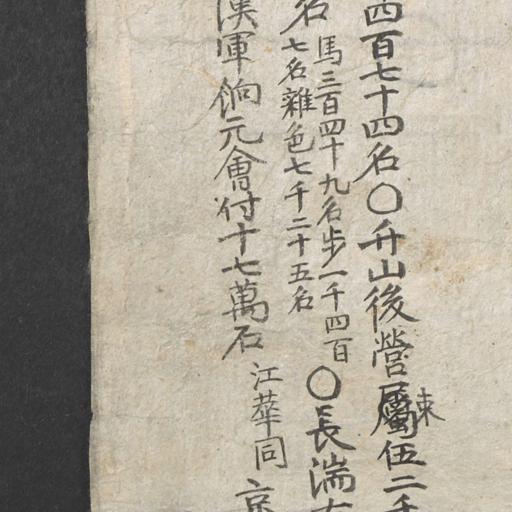 四百七十四名〇舟山後營屬束伍二千
名馬三百四十九名步一千四百
七名雜色七千二十五名〇長湍右
漢軍餉元會付十七萬石江華同京